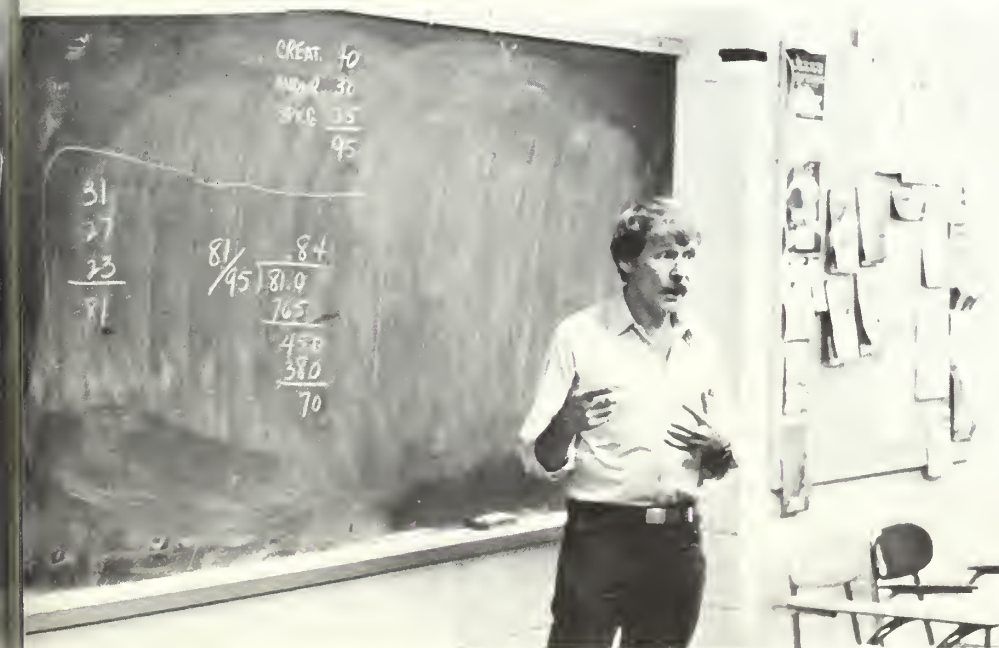 CREAT. 40
30
SPKG
95
31
27
23
81
81/95 .84
81.0
765
450
380
70